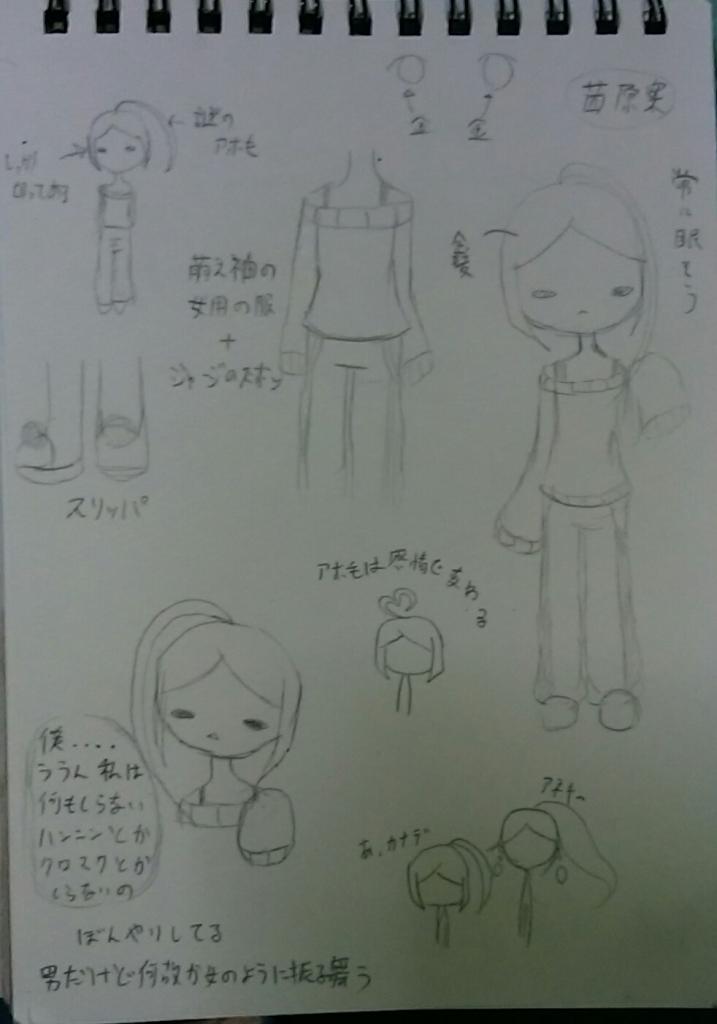 金
金
苗原実
謎の
アホ毛
常に眠そう
金髪
萌え袖の
女用の服
+
ジャージのズボン
スリッパ
アホ毛は感情で変わる
僕....
ううん 私は
何もしらない
ハンニンとか
クロスクとか
しらないの
アネキー
あ、カナデ
ぼんやりしてる
男だけど何故か女のように振る舞う